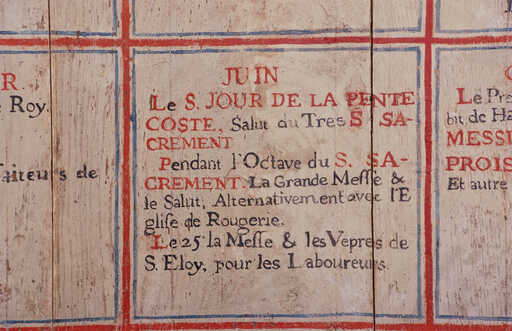 JUIN
Le S. JOUR DE LA PENTE
COSTE, Salut du Tres S SA-
CREMENT
Pendant l'Octave du S. SA-
CREMENT. La Grande Messe &
le Salut, Alternativement avec l'E
glise de Rougerie.
Le 25 la Messe & les Vepres de
S. Eloy, pour les Laboureurs.
R.
Roy.
de
Le Pre
bit de Ha
MESSI
PROIS
Et autre